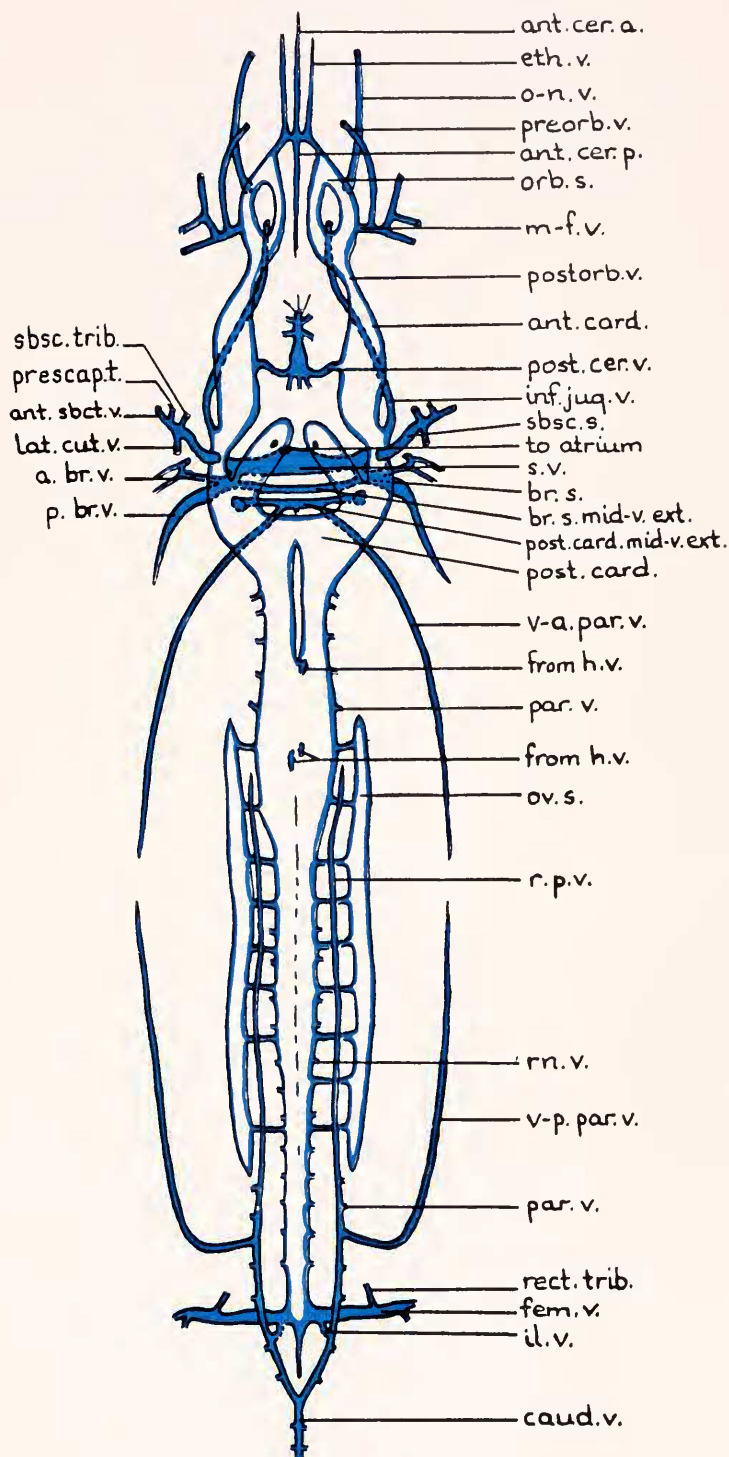 ant. cer. a.
eth. v.
o-n. v.
preorb. v.
ant. cer. p.
orb. s.
m-f. v.
postorb. v.
ant. card.
post. cer. v.
inf. jug. v.
sbsc. s.
to atrium
s. v.
br. s.
br. s. mid-v. ext.
post. card. mid-v. ext.
post. card.
v-a. par. v.
from h. v.
par. v.
from h. v.
ov. s.
r. p. v.
rn. v.
v-p. par. v.
par. v.
rect. trib.
fem. v.
il. v.
caud. v.
sbsc. trib.
prescap. t.
ant. sbct. v.
lat. cut. v.
a. br. v.
p. br. v.